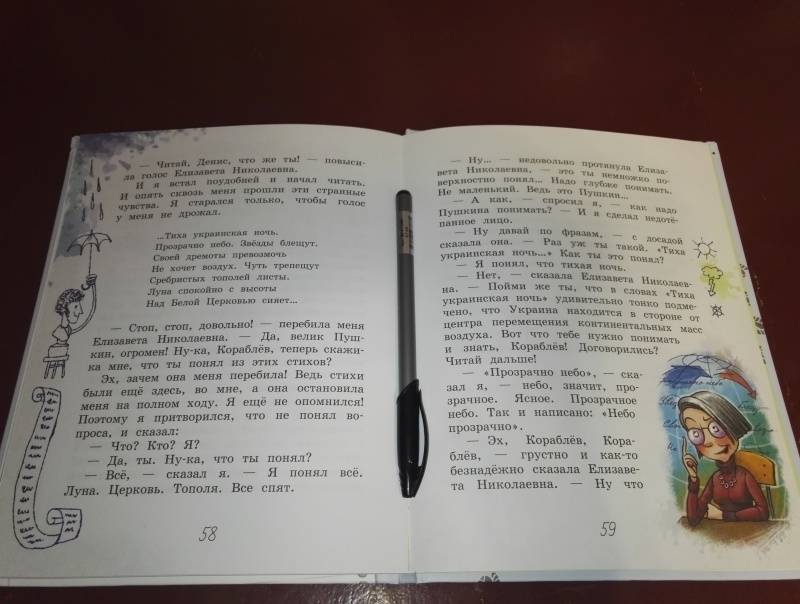 — Читай, Денис, что же ты! — повыси-
ла голос Елизавета Николаевна.
И я встал поудобней и начал читать.
И опять сквозь меня прошли эти странные
чувства. Я старался только, чтобы голос
у меня не дрожал.
...Тиха украинская ночь.
Прозрачно небо. Звёзды блещут.
Своей дремоты превозмочь
Не хочет воздух. Чуть трепещут
Сребристых тополей листы.
Луна спокойно с высоты
Над Белой Церковью сияет...
— Стоп, стоп, довольно! — перебила меня
Елизавета Николаевна. — Да, велик Пуш-
кин, огромен! Ну-ка, Кораблёв, теперь скажи-
ка мне, что ты понял из этих стихов?
Эх, зачем она меня перебила! Ведь стихи
были ещё здесь, во мне, а она остановила
меня на полном ходу. Я ещё не опомнился!
Поэтому я притворился, что не понял во-
проса, и сказал:
— Что? Кто? Я?
— Да, ты. Ну-ка, что ты понял?
— Всё, — сказал я. — Я понял всё.
Луна. Церковь. Тополя. Все спят.
58
— Ну... — недовольно протянула Елиза-
вета Николаевна, — это ты немножко по-
верхностно понял... Надо глубже понимать.
Не маленький. Ведь это Пушкин...
— А как, — спросил я, — как надо
Пушкина понимать? — И я сделал недотё-
панное лицо.
— Ну давай по фразам, — с досадой
сказала она. — Раз уж ты такой. «Тиха
украинская ночь...» Как ты это понял?
— Я понял, что тихая ночь.
— Нет, — сказала Елизавета Николаев-
на. — Пойми же ты, что в словах «Тиха
украинская ночь» удивительно тонко подме-
чено, что Украина находится в стороне от
центра перемещения континентальных масс
воздуха. Вот что тебе нужно понимать
и знать, Кораблёв! Договорились?
Читай дальше!
— «Прозрачно небо», — ска-
зал я, — небо, значит, про-
зрачное. Ясное. Прозрачное
небо. Так и написано: «Небо
прозрачно».
— Эх, Кораблёв, Кора-
блёв, — грустно и как-то
безнадёжно сказала Елизаве-
та Николаевна. — Ну что
59